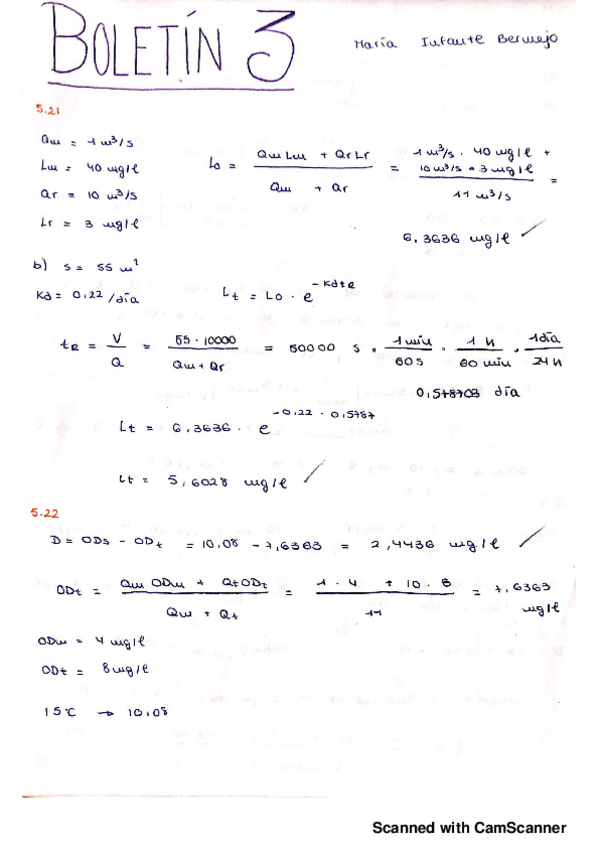 BOLETÍN 3
María Infante Bermejo
5.21
Qw = 1 m³/s
Lw = 40 mg/l
Qr = 10 m³/s
Lr = 3 mg/l
Lo = (Qw Lw + Qr Lr) / (Qw + Qr) = (1 m³/s · 40 mg/l + 10 m³/s · 3 mg/l) / 11 m³/s =
6,3636 mg/l ✓
b) s = 55 m²
Kd = 0,22 /día
Lt = Lo · e^(-Kd tR)
tR = V / Q = 55 · 10000 / (Qw + Qr) = 50000 s · 1 min / 60 s · 1 h / 60 min · 1 día / 24 h
0,578703 día
Lt = 6,3636 · e^(-0,22 · 0,5787)
Lt = 5,6028 mg/l ✓
5.22
D = ODs - ODt = 10,08 - 7,6363 = 2,4436 mg/l ✓
ODt = (Qw ODw + Qt ODt) / (Qw + Qt) = (1 · 4 + 10 · 8) / 11 = 7,6363 mg/l
ODw = 4 mg/l
ODt = 8 mg/l
15°C → 10,08
Scanned with CamScanner